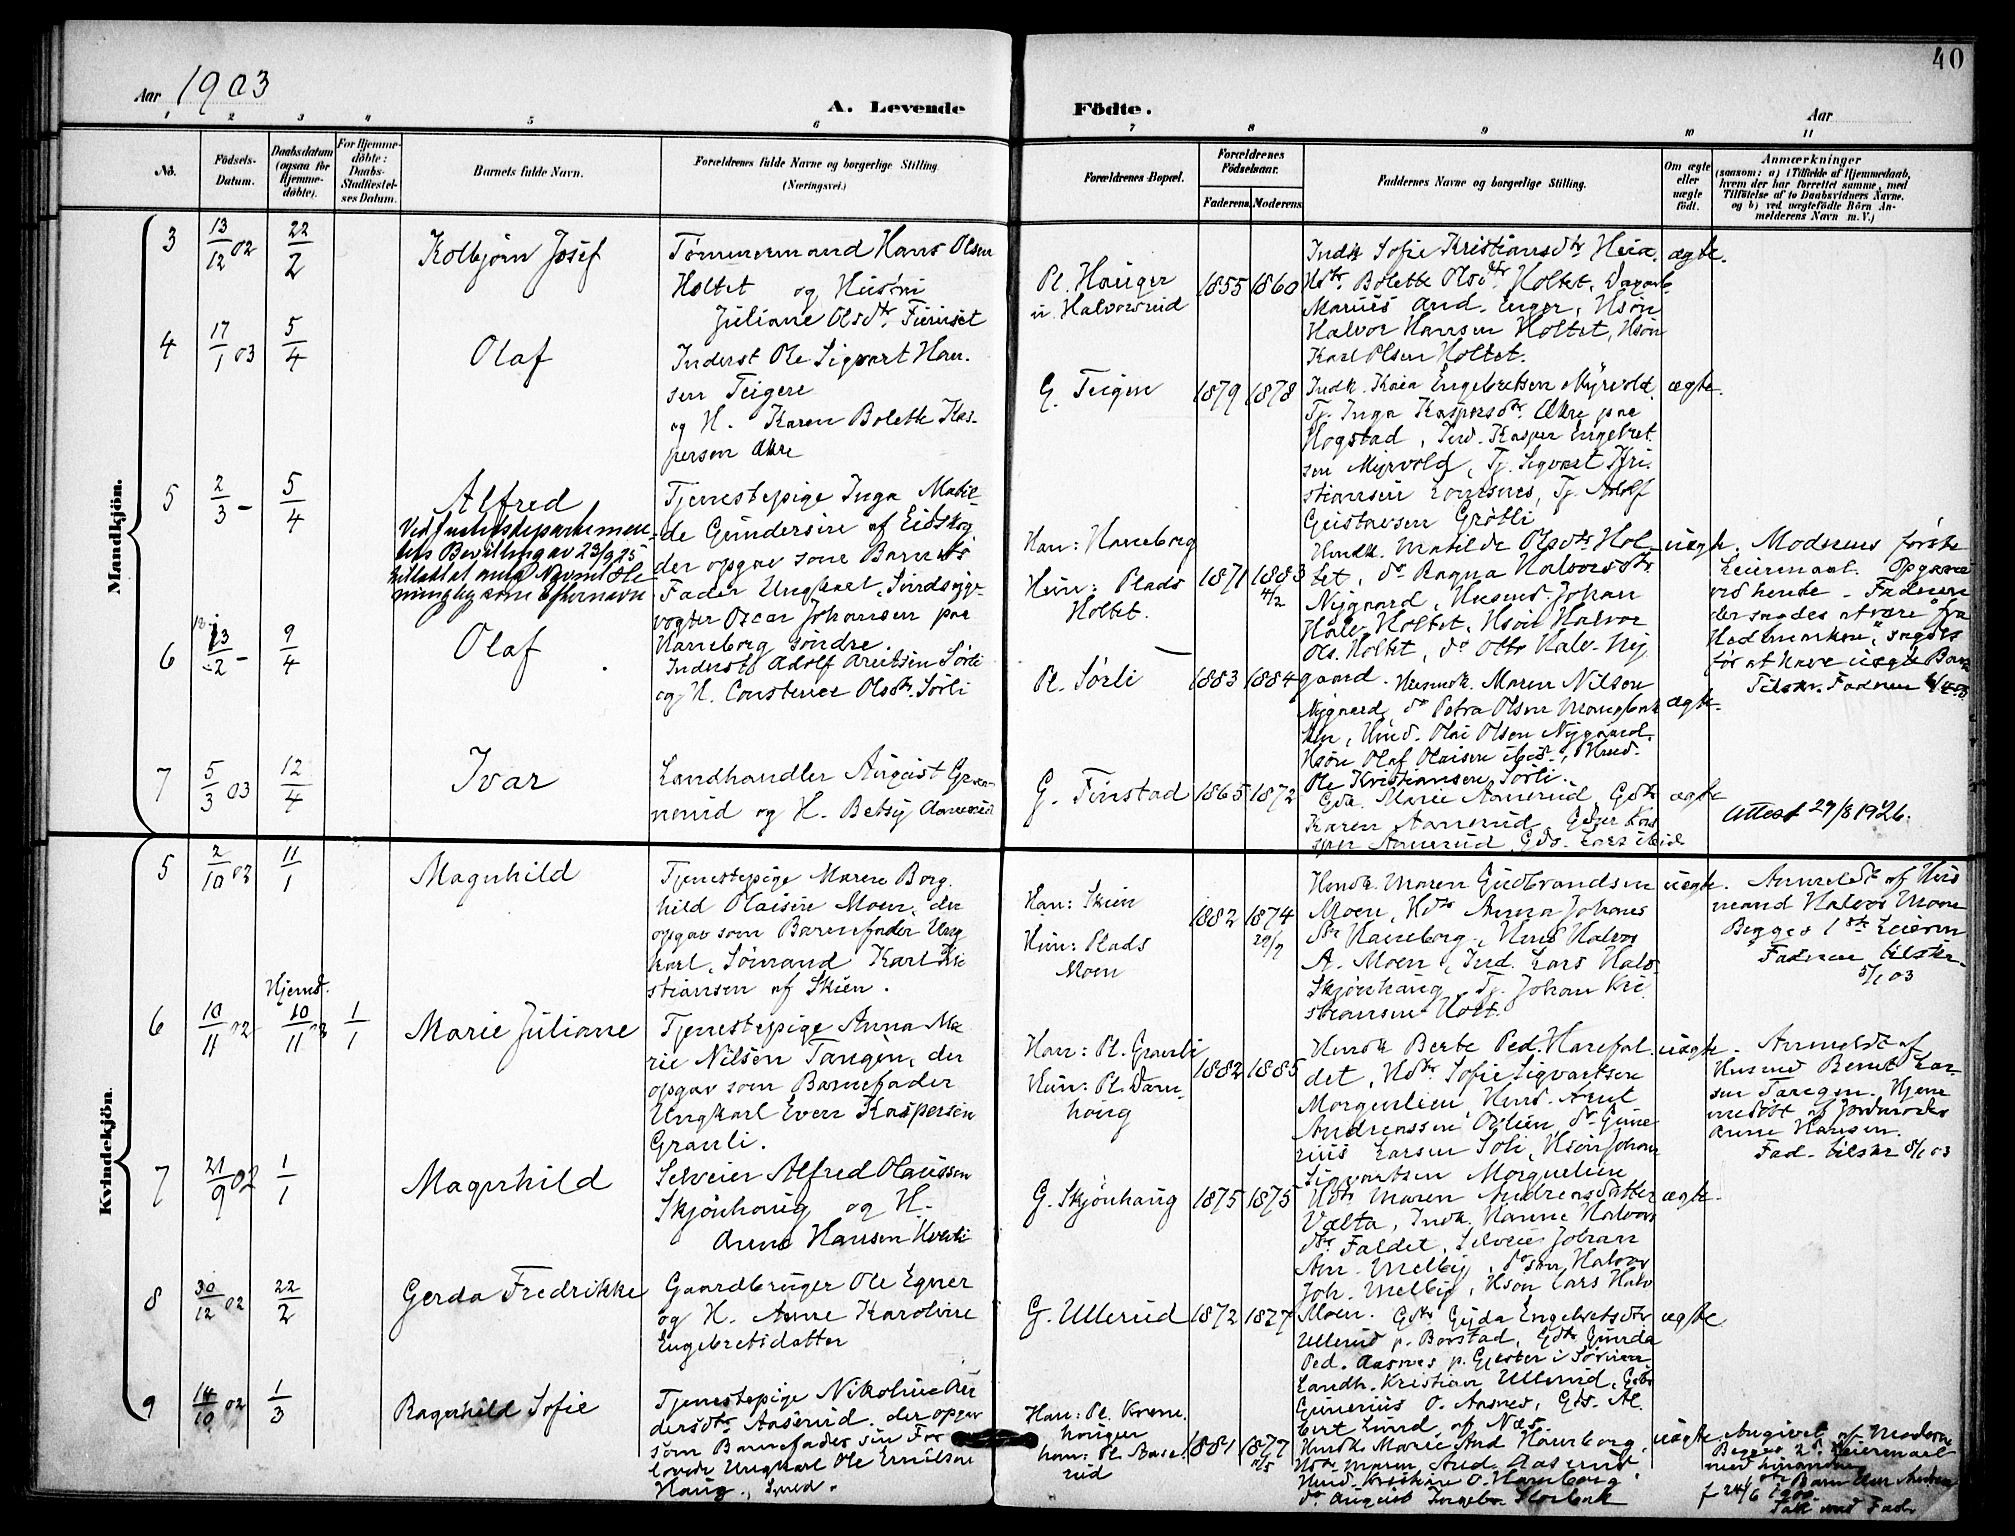 40
Aar 1903
A. Levende Födte.
Aar
1 2 3 4 5 6 7 8 9 10 11
No.
Födsels-Datum.
Daabsdatum (ogsaa for Hjemme-döbte).
For Hjemme-döbte: Daabs-Stadfæstel-ses Datum.
Barnets fulde Navn.
Forældrenes fulde Navne og borgerlige Stilling. (Næringsvei.)
Forældrenes Bopæl.
Forældrenes Födselsaar.
Faderens. Moderens.
Faddernes Navne og borgerlige Stilling.
Om ægte eller uægte födt.
Anmærkninger
(saasom: a) i Tilfælde af Hjemmedaab,
hvem der har forrettet samme, med
Tilföielse af to Daabsvidners Navne.
og b) ved uægtefödte Börn An-
melderens Navn m. V.)
Mandkjön.
3 13/12 02 22/2 Kolbjørn Josef
Tømmermand Hans Olsen
Holtet og Hustru
Juliane Olsdtr.
Pl. Hauger
u. Halvorsrud
1855 1860
Indk Sofie Kristiansdtr Heia.
Hdtr. Bolette Olsdtr. Holtet,
Marius And. Enger, Hsøn
Halvor Hansen Holtet, Hsøn
Karl Olsen Holtet.
ægte.
4 17/1 03 5/4 Olaf
Inderst Ole Sigvart Han-
sen Teigen
og H. Karen Bolette Kas-
persen Akre
G. Teigen 1879 1878
Indk. Kaia Engebretsen Myrvold.
Tj. Inga Kaspersdtr. Akre paa
Hogstad, Ind. Kasper Engebret-
sen Myrvold, Tj. Sigvart Kri-
stiansen Tj. Adolf
Gustavsen Grøtli
ægte.
5 2/3 - 5/4 Alfred
Ved Justitsdepartemen-
tets Bevilling av 23/9 25
tillatt at
som efternavn
Tjenestepige Inga Matil-
de Gundersen af Eidskog
der opgav som Barnets
Fader Ungkarl, Sindssyge-
vogter Oscar Johansen paa
Haneborg søndre.
Han: Haneborg
Hun: Plads
Holtet.
1871 1883
4/2
Husmk. Matilde Olsdtr. Hol-
tet, do Ragna Halvorsdtr
Nygaard, Husmd. Johan
Halv. Holtet, Hsøn Halvor
Ols. Holtet, do Otto Halv. Ny-
gaard.
uægte.
Moderens første
Leiermaal. Opgave
ved hende - Faderen
der sagdes at være "fra
Hedmarken", sagdes
før at have uægte Barn
Tilskr. Faderen
6 13/2 - 9/4 Olaf
Inderst Adolf Arntsen Sørli
og H. Constance Olsdtr. Sørli
Pl. Sørli 1883 1884
Husmk. Maren Nilsen
Nygaard, do Petra Olsen
Hmd. Olai Olsen Nygaard.
Hsøn Olaf Olaisen ibid., Hmd.
Ole Kristiansen Sørli.
ægte.
7 5/3 03 12/4 Ivar
Landhandler August Græs-
nerud og H. Betsy Aamerud
G. Finstad 1865 1872
Gdk. Marie Aamerud, Gdtr
Karen Aamerud,
Aamerud, Gds. Lars ibid
ægte
Attest 27/8 1926.
Kvindekjön.
5 2/10 02 11/1 Magnhild
Tjenestepige Maren Borg-
hild Olaisen Moen, der
opgav som Barnefader Ung-
karl, Sømand Karl Kri-
stiansen af Skien.
Han: Skien
Hun: Plads
Moen
1882 1874
Husmk. Maren Gudbrandsen
Moen, Hdtr Anna Johans-
dtr Haneborg, Hmd Halvor
A. Moen, Ind. Lars Halv.
Skjønhaug, Tj. Johan Kri-
stiansen Holt.
uægte.
Anmeldt af Hus-
mand Halvor Moen
Begges 1ste Leierm
Faderen tilskr.
5/1 03
6 10/11 02 Hjemd. 10/11 02 1/1 Marie Juliane
Tjenestepige Anna Ma-
rie Nilsen Tangen, der
opgav som Barnefader
Ungkarl Even Kaspersen
Granli.
Han: Pl. Granli
Hun: Pl. Dam-
haug
1882 1885
Husmk Berte Ped. Harefal-
det, Hdtr Sofie Sigvartsen
Morguelien, Hmd. Amt
Andreassen Oslien, do Gune-
rius Larsen Soli, Hsøn Johan
Sigvartsen Morguelien
uægte.
Anmeldt af
Husmd Bernt Lar-
sen Tangen. Hjem-
medøbt af Jordmoder
Anne Hansen.
Fad. tilskr 5/1 03
7 21/9 02 1/1 Magnhild
Selveier Alfred Olaussen
Skjønhaug og H.
Anne Hansen
G. Skjønhaug 1875 1875
Hdtr. Maren Andreasdatter
Vælta, Indk. Hanne Halvors-
dtr. Faldet, Selveier Johan
An. Melby, do søn Halvor
Joh. Melby, Hsøn Lars Halv
Moen.
ægte.
8 30/12 02 22/2 Gerda Fredrikke
Gaardbruger Ole Egner
og H. Anne Karoline
Engebretsdatter
G. Ullerud 1872 1877
Gdtr Gyda Engebretsdtr
Ullerud p. Borstad, Gdtr Gunda
Ped. Aasnes p. Gjester i Sørum
Landh. Kristian Ullerud, Gdbr
Gunerius O. Aasnes, Gds. Al-
bert Lund af Næs.
ægte
9 14/10 02 1/3 Ragnhild Sofie
Tjenestepige Nikoline An-
dersdtr Aaserud, der opgav
som Barnefader sin For-
lovede Ungkarl Ole Emilsen
Haug., Smed.
Han: Pl.
haugen
hun: Pl. Aase-
rud
1881 1877
Husmk. Marie And Haneborg.
Hdtr Maren And. Aaserud
Hmd. Kristian O. Haneborg
do August
uægte.
Angivet af Moderen
Begges 2. Leiermaal
med hinanden
Barn
f 24/6 1900